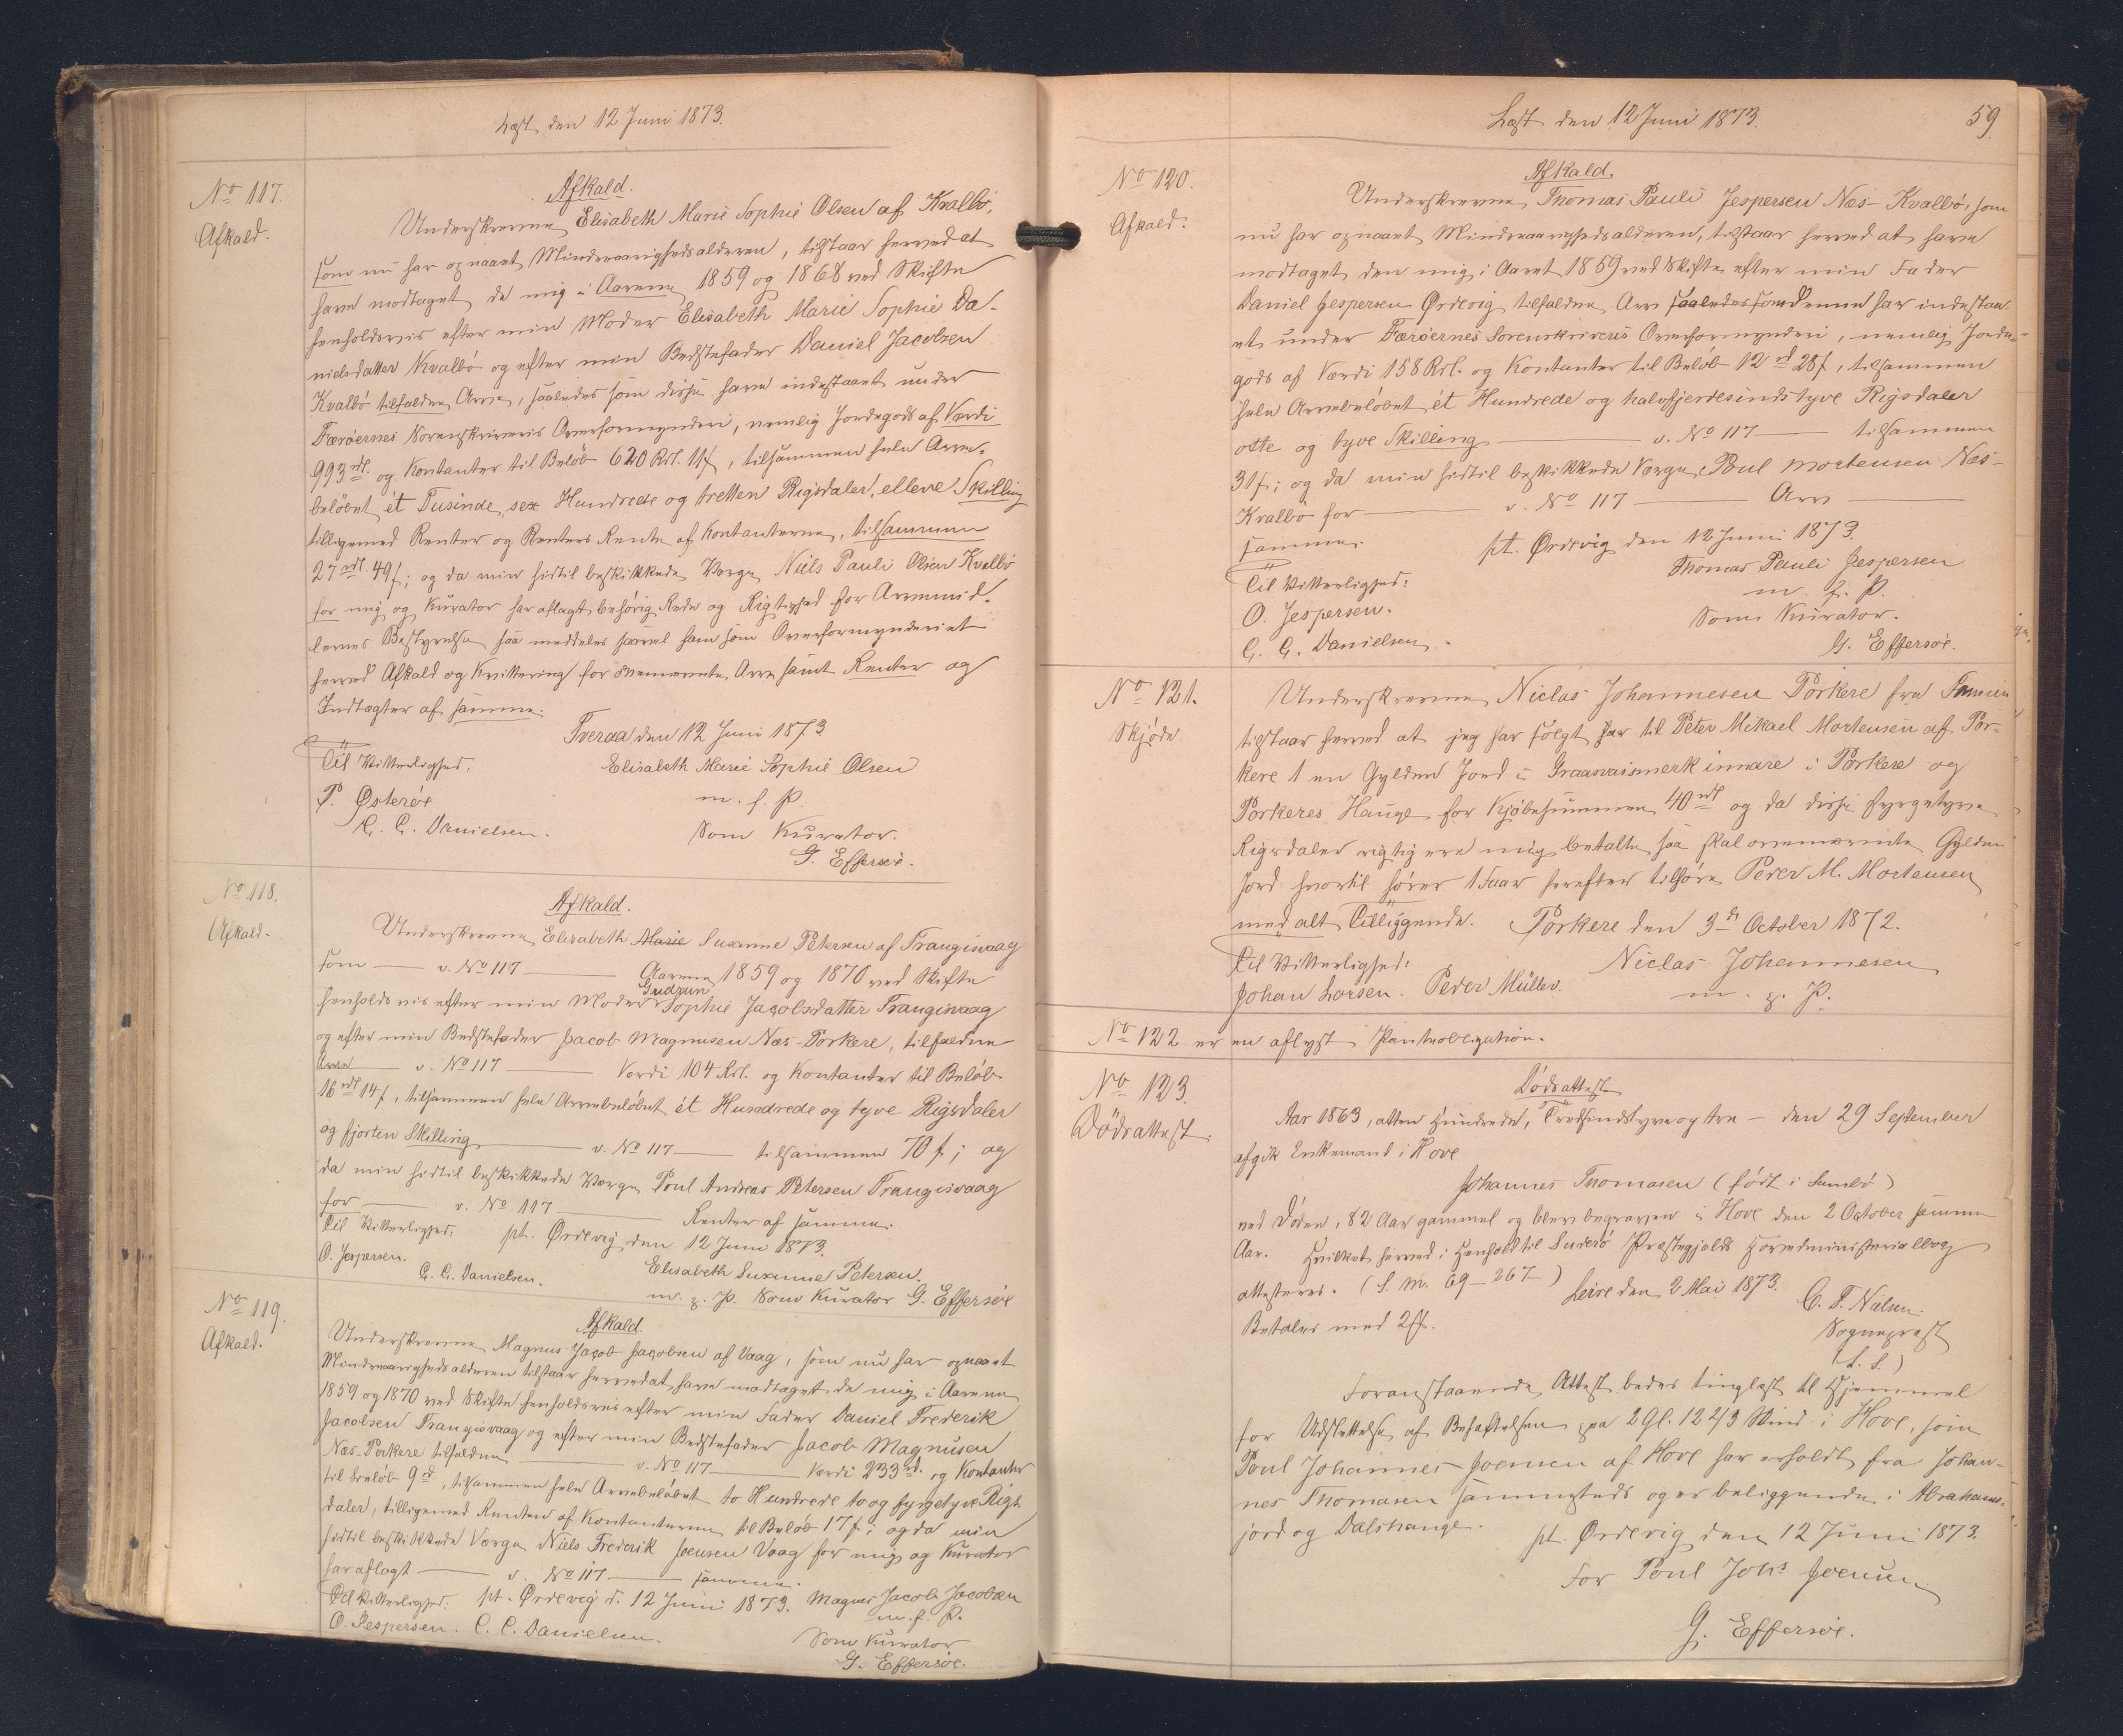 Læst den 12 Juni 1873.
No 117.
Afkald.
Afkald.
Underskrevne Elisabeth Marie Sophie Olsen af Kvalbö,
som nu har opnaaet Mindreaarighedsalderen, tilstaar herved at
have modtaget de mig i Aarene 1859 og 1868 ved Skifte
henholdsvis efter min Moder Elisabeth Marie Sophie Da-
nielsdatter Kvalbö og efter min Bedstefader Daniel Jacobsen
Kvalbö tilfaldne Arve, saaledes som disse have indestaaet under
Færöernes Sorenskriveris Overformynderi, nemlig Jordegods af Værdi
993 rdl. og Kontanter til Belöb 620 Rdl. 11 ſ, tilsammen hele Arve-
belöbet ét Tusinde, sex Hundrede og tretten Rigsdaler, elleve Skilling
tilligemed Renter og Renters Rente af Kontanterne, tilsammen
27 rdl. 49 ſ; og da min hidtil beskikkede Værge Niels Pauli Olsen Kvalbö
for mig og Kurator har aflagt behörig Rede og Rigtighed for Arvemid-
lernes Bestyrelse saa meddeles saavel ham som Overformynderiet
herved Afkald og Kvittering for ovennævnte Arv samt Renter og
Indtægter af samme.
Tveraa den 12 Juni 1873
Til Vitterlighed:
Elisabeth Marie Sophie Olsen
P. Østeröe
m. f. P.
C. C. Danielsen.
Som Kurator.
G. Effersöe.
No 118.
Afkald.
Afkald.
Underskrevne Elisabeth Marie Susanne Petersen af Trangisvaag
som — v. No 117 — Aarene 1859 og 1870 ved Skifte
Gudrun
henholdsvis efter min Moder Sophie Jacobsdatter Trangisvaag
og efter min Bedstefader Jacob Magnusen Næs-Porkere, tilfaldne
Arve — v. No 117 — Værdi 104 Rdl. og Kontanter til Belöb
16 rdl 14 ſ, tilsammen hele Arvebelöbet ét Hundrede og tyve Rigsdaler
og fjorten Skilling — v. No 117 — tilsammen 70 ſ; og
da min hidtil beskikkede Værge Poul Andreas Petersen Trangisvaag
for — v. No 117 — Renter af samme.
Til Vitterlighed, pt. Ördevig den 12 Juni 1873.
O. Jespersen.
Elisabeth Susanne Petersen.
C. C. Danielsen.
m. f. P. Som Kurator G. Effersöe
No 119.
Afkald.
Afkald.
Underskrevne Magnus Jacob Jacobsen af Vaag, som nu har opnaaet
Mindreaarighedsalderen tilstaar herved at have modtaget de mig i Aarene
1859 og 1870 ved Skifte henholdsvis efter min Fader Daniel Frederik
Jacobsen Trangisvaag og efter min Bedstefader Jacob Magnusen
Næs-Porkere tilfaldne — v. No 117 — Værdi 233 rd. og Kontanter
til Belöb 9 rd, tilsammen hele Arvebelöbet to Hundrede to og fyrgetyve Rigs
daler, tilligemed Renten af Kontanterne til Belöb 17 ſ; og da min
hidtil beskikkede Værge Niels Frederik Joensen Vaag for mig og Kurator
har aflagt — v. No 117 — samme.
Til Vitterlighed: pt. Ördevig d. 12 Juni 1873. Magnus Jacob Jacobsen
O. Jespersen. C. C. Danielsen.
m. f. P.
Som Kurator
G. Effersöe.
Læst den 12 Juni 1873.
59
No 120.
Afkald.
Afkald.
Underskrevne Thomas Pauli Jespersen Næs-Kvalbö, som
nu har opnaaet Mindreaarighedsalderen, tilstaar herved at have
modtaget den mig i Aaret 1859 ved Skifte efter min Fader
Daniel Jespersen Ördevig tilfaldne Arv saaledes som denne har indestaa
et under Færöernes Sorenskriveris Overformynderi, nemlig Jorde-
gods af Værdi 158 Rdl. og Kontanter til Belöb 12 rd 28 ſ, tilsammen
hele Arvebelöbet ét Hundrede og halvfjerdesindstyve Rigsdaler
otte og tyve Skilling — v. No 117 — tilsammen
31 ſ; og da min hidtil beskikkede Værge, Poul Mortensen Næs-
Kvalbö for — v. No 117 — Arv —
samme.
pt. Ördevig den 12 Juni 1873.
Til Vitterlighed:
Thomas Pauli Jespersen
O. Jespersen.
m. f. P.
C. C. Danielsen.
Som Kurator.
G. Effersöe.
No 121.
Skjöde
Underskrevne Niclas Johannesen Porkere fra Famien
tilstaar herved at jeg har solgt til Peter Mikael Mortensen af Por-
kere 1 en Gylden Jord i Graasvaismerk innare i Porkere og
Porkeres Hauge for Kjöbesummen 40 rdl og da disse fyrgetyve
Rigsdaler rigtig ere mig betalte saa skal ovennævnte Gylden
Jord hvortil hörer 1 Faar herefter tilhöre Peder M. Mortensen
med alt Tilliggende. Porkere den 3die October 1872.
Til Vitterlighed:
Niclas Johannesen
Johan Larsen. Peder Müller.
m. f. P.
No 122 er en aflyst Panteobligation.
No 123.
Dödsattest.
Dödsattest
Aar 1863, atten Hundrede, Tredsindstyve og tre — den 29 September
afgik Enkemand i Hove
Johannes Thomasen (födt i Sumbö)
ved Döden, 82 Aar gammel og blev begraven i Hove den 2 October samme
Aar. Hvilket herved i Henhold til Suderö Præstegjelds Hovedministerialbog
attesteres. (S. M. 69 — 267 —) Leire den 2 Mai 1873.
C. T. Nielsen.
Betales med 2 ſſ.
Sognepræst
(L. S.)
Foranstaaende Attest bedes tinglæst til Hjemmel
for Udslettelse af Behæftelsen paa 2 Gl. 12 2/3 Skind i Hove, som
Poul Johannes Joensen af Hove har erholdt fra Johan-
nes Thomasen sammesteds og er beliggende i Abrahams-
jord og Dalshauge.
pt. Ördevig den 12 Juni 1873.
For Poul Johs Joensen
G. Effersöe.